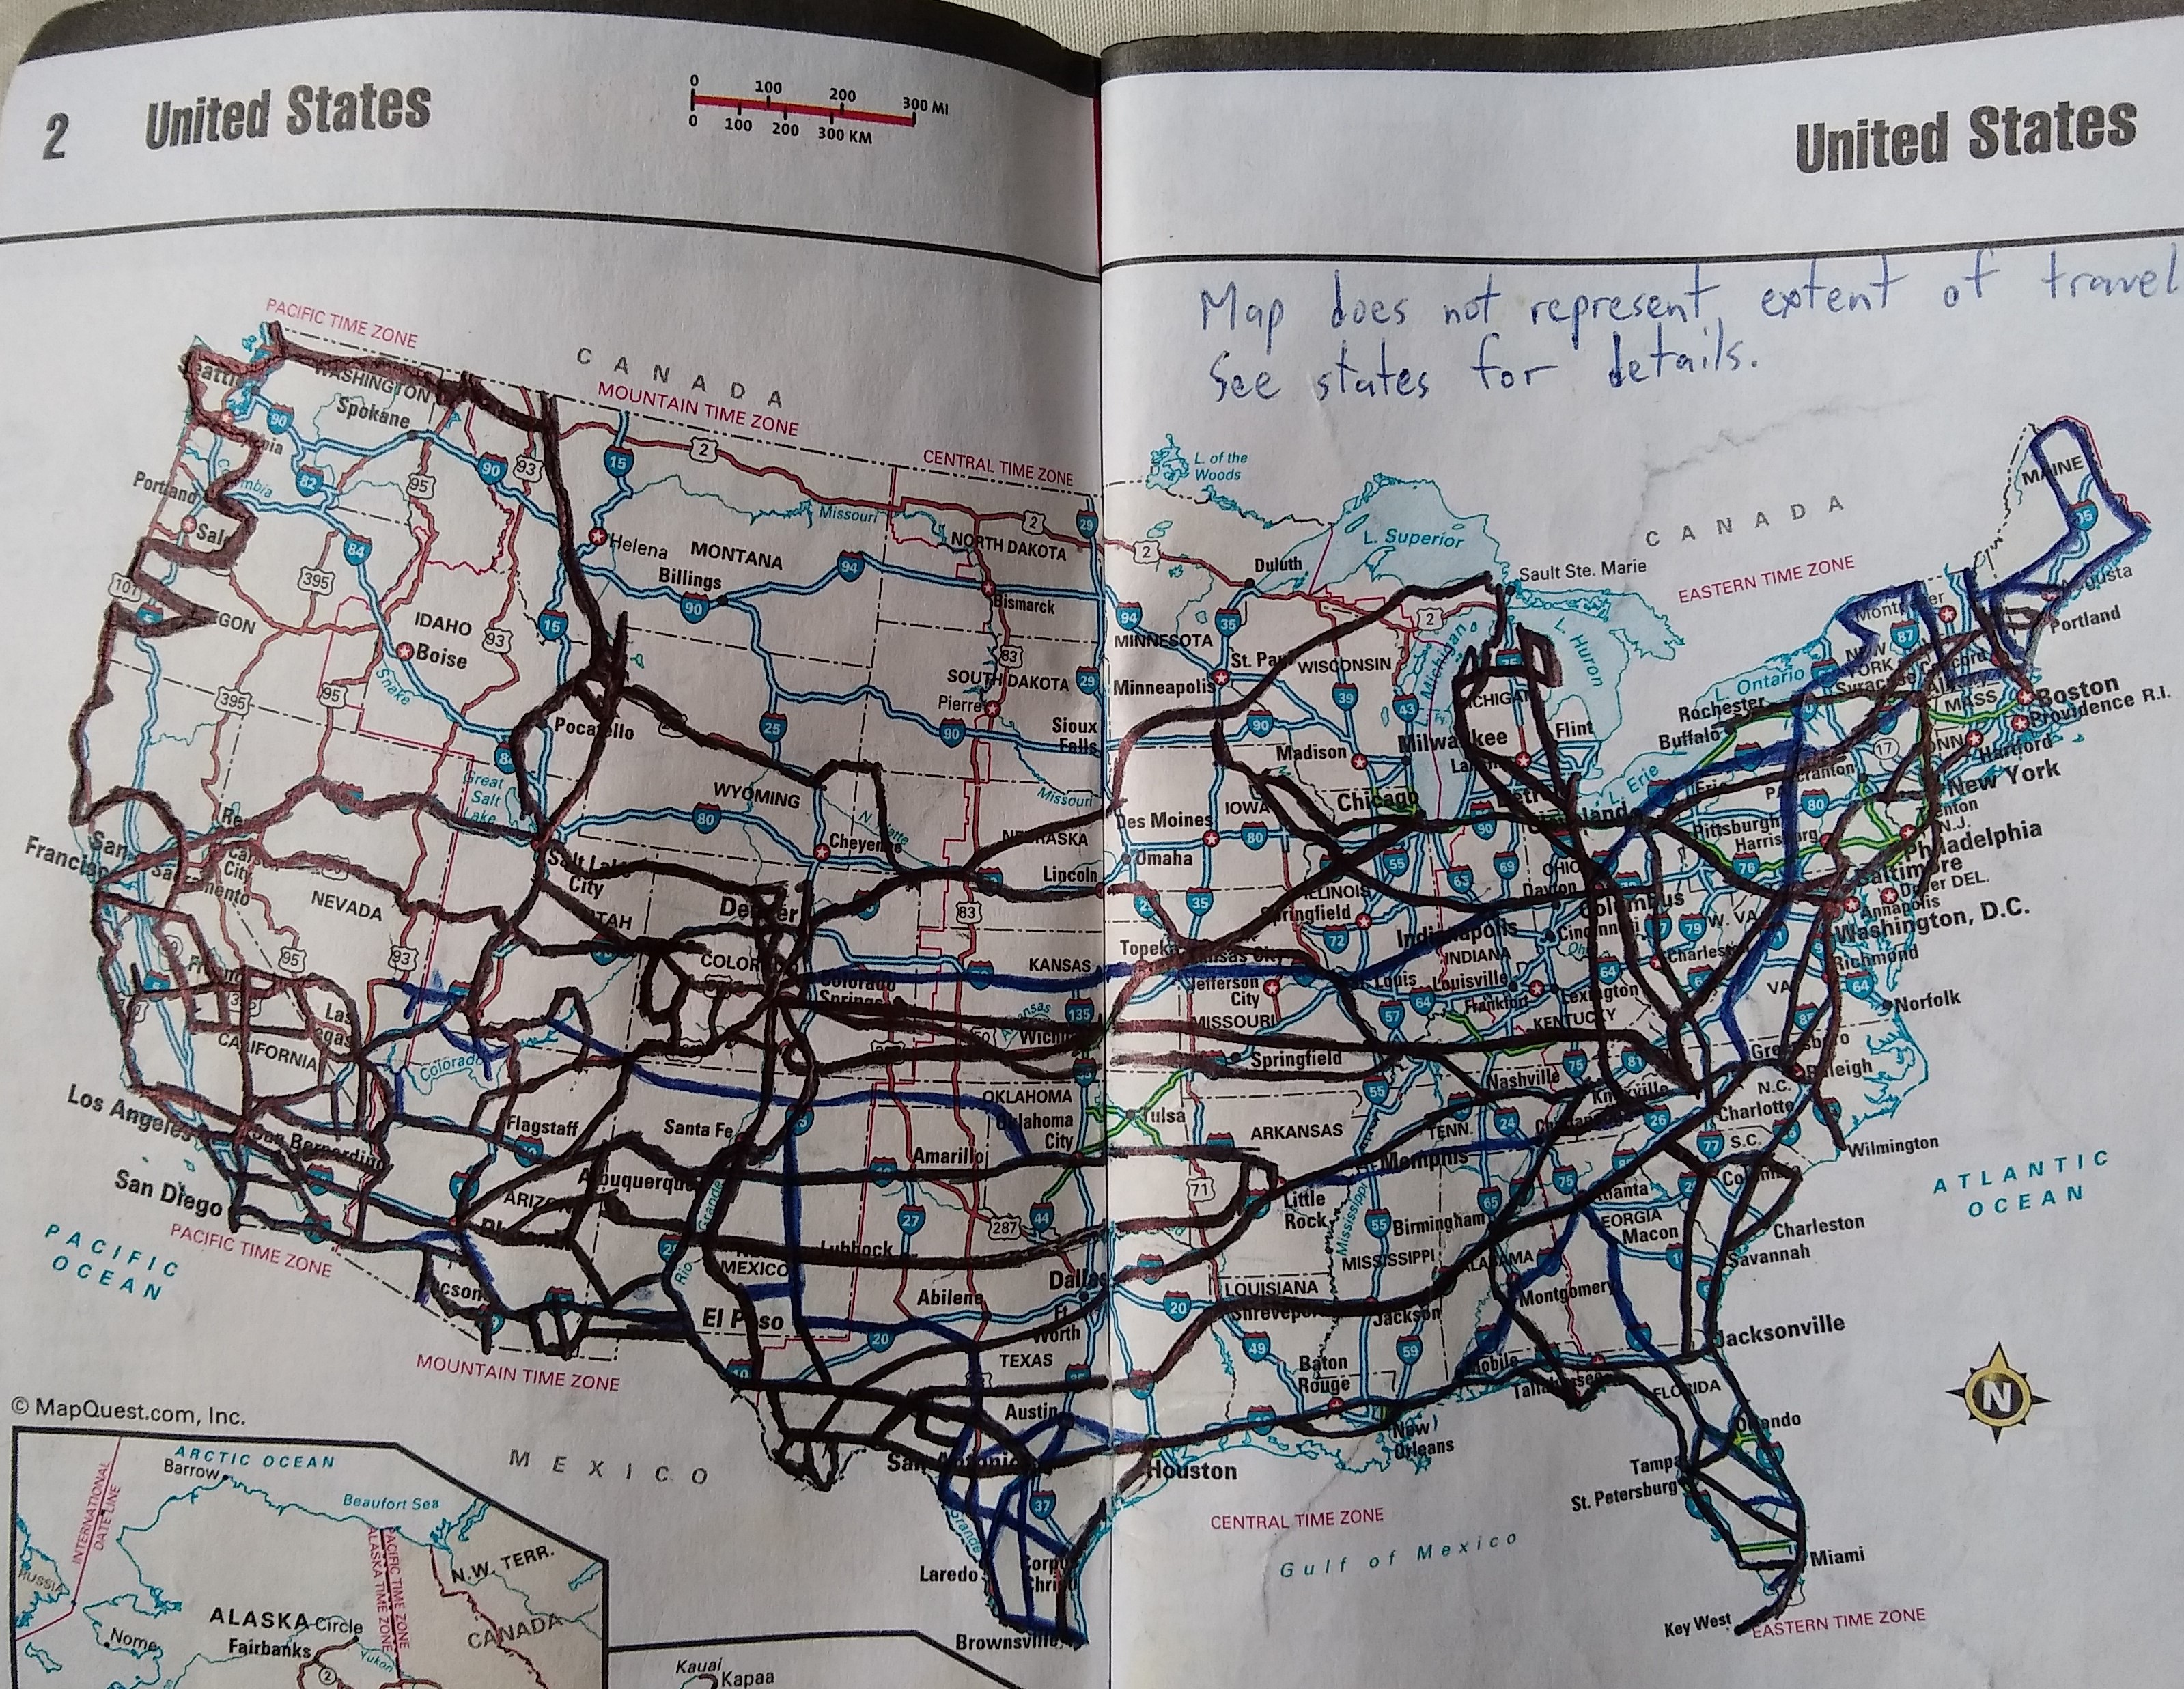 2 United States
0 100 200 300 MI
0 100 200 300 KM
United States
Map does not represent extent of travel
See states for details.
PACIFIC TIME ZONE
CANADA
MOUNTAIN TIME ZONE
CENTRAL TIME ZONE
L. of the
Woods
CANADA
EASTERN TIME ZONE
WASHINGTON
Spokane
90
82
90
93
95
15
2
Missouri
2
29
2
MAINE
95
Portland
84
395
101
5
Helena
MONTANA
94
NORTH DAKOTA
Bismarck
Billings
90
94
Duluth
L. Superior
Sault Ste. Marie
35
2
Augusta
Portland
IDAHO
Boise
93
15
83
MINNESOTA
St. Paul
WISCONSIN
L. Michigan
L. Huron
87
395
95
Snake
SOUTH DAKOTA
29
Pierre
Minneapolis
39
43
L. Ontario
Rochester
Buffalo
MASS
Boston
Providence R.I.
Hartford
Pocatello
25
90
Sioux
Falls
90
Madison
Milwaukee
Flint
L. Erie
17
New York
Great
Salt
Lake
WYOMING
80
Missouri
NEBRASKA
IOWA
Chicago
Des Moines
80
Omaha
Pittsburgh
80
N.J.
Philadelphia
Baltimore
San
Francisco
Sacramento
Salt Lake
City
N. Platte
Cheyenne
Lincoln
55
65
69
OHIO
Dayton
Columbus
76
Dover DEL.
Annapolis
Washington, D.C.
NEVADA
95
93
UTAH
Denver
83
35
ILLINOIS
Springfield
72
Indianapolis
INDIANA
Cincinnati
W. VA.
79
Charleston
Richmond
Norfolk
COLORADO
Colorado
Springs
KANSAS
Topeka
Kansas City
Jefferson
City
St. Louis
Louisville
Frankfort
Lexington
64
64
VA
64
Las
Vegas
CALIFORNIA
Colorado
Arkansas
135
Wichita
MISSOURI
Springfield
57
KENTUCKY
Greensboro
Raleigh
Los Angeles
San Bernardino
Flagstaff
Santa Fe
OKLAHOMA
Oklahoma
City
Tulsa
ARKANSAS
55
Nashville
75
81
Knoxville
N.C.
Charlotte
26
TENN.
24
Wilmington
San Diego
ARIZONA
Albuquerque
Amarillo
71
Little
Rock
Memphis
Mississippi
75
77
S.C.
Columbia
Charleston
Savannah
PACIFIC
OCEAN
PACIFIC TIME ZONE
Tucson
Rio Grande
NEW
MEXICO
Lubbock
27
287
44
Dallas
Ft.
Worth
Abilene
20
20
LOUISIANA
Shreveport
55
Birmingham
65
MISSISSIPPI
Jackson
ALABAMA
Montgomery
GEORGIA
Macon
ATLANTIC
OCEAN
El Paso
TEXAS
49
Baton
Rouge
59
Mobile
Tallahassee
Jacksonville
FLORIDA
MOUNTAIN TIME ZONE
© MapQuest.com, Inc.
MEXICO
Austin
San Antonio
Houston
New
Orleans
Orlando
Tampa
St. Petersburg
N
37
Laredo
Corpus
Christi
Brownsville
CENTRAL TIME ZONE
Gulf of Mexico
Miami
Key West
EASTERN TIME ZONE
ARCTIC OCEAN
Barrow
Beaufort Sea
INTERNATIONAL
DATE LINE
PACIFIC TIME ZONE
ALASKA TIME ZONE
N.W. TERR.
RUSSIA
ALASKA
Circle
CANADA
Nome
Fairbanks
Yukon
2
Kauai
Kapaa